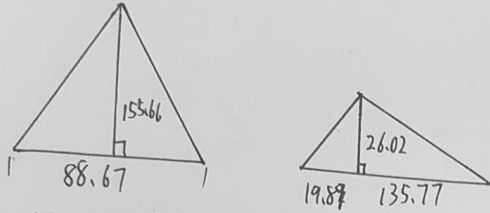 155.66
88.67
26.02
19.89 135.77